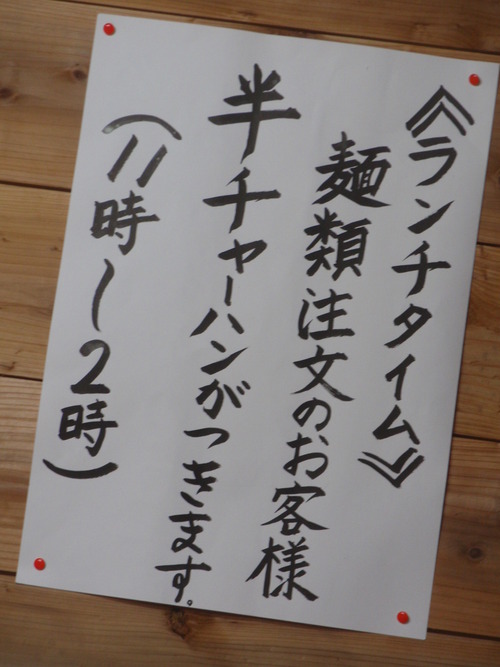 《ランチタイム》
麺類注文のお客様
半チャーハンがつきます。
(11時〜2時)